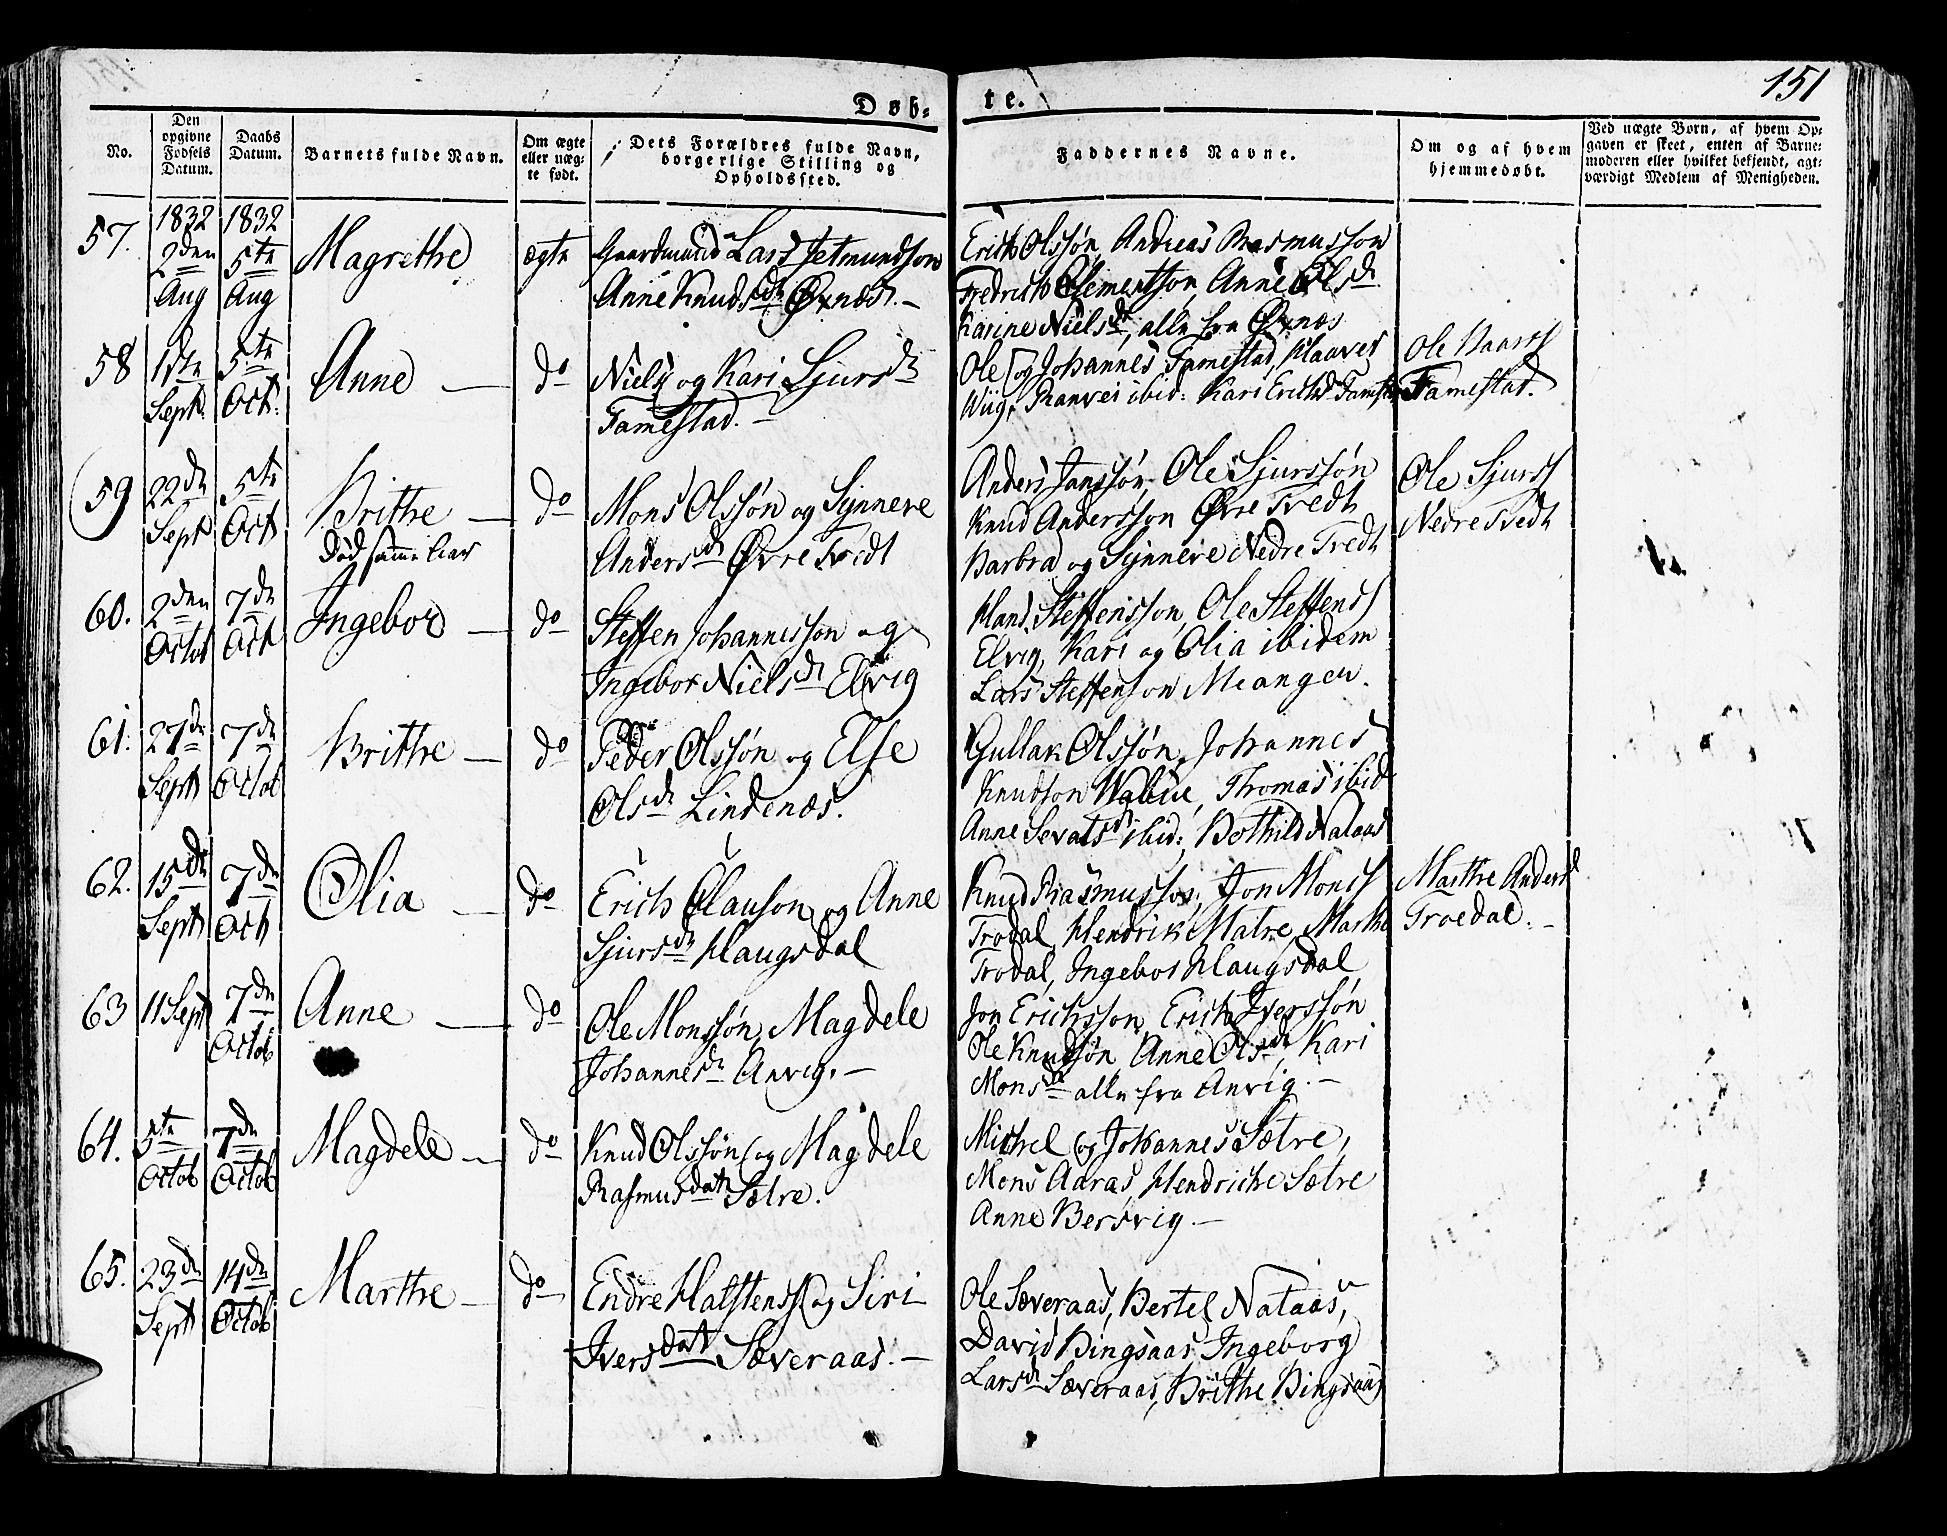 151
Døb- te.
No.
Den opgivne Fødsels Datum.
Daabs Datum.
Barnets fulde Navn.
Om ægte eller uæg- te født.
Dets Forældres fulde Navn, borgerlige Stilling og Opholdssted.
Faddernes Navne.
Om og af hvem hjemmedøbt.
Ved uægte Børn, af hvem Op- gaven er skeet, enten af Barne- moderen eller hvilket bekjendt, agt- værdigt Medlem af Menigheden.
57. 1832 2den Aug
1832 5te Aug
Magrethe
ægte
Gaardmand Lars Jetmundson
Anne Knudsdr Øxnæs. -
Erich Olssøn, Andreas Rasmusson
Fredrich Clementson, Anne Olsdr
Karine Nielsdr, alle fra Øxnæs
58 1ste Sept.
5te Oct.
Anne
do
Niels og Kari Sjursdr
Famestad. -
Ole og Johannes Famestad, Klaaver
Wiig, Ranvei ibid: Kari Erichsd Famest
Ole
Famestad.
59 22de Sept
5te Oct
Brithe
død samme
do
Mons Olssøn og Synneve
Andersdr Øvre Tvedt
Anders Janssøn, Ole Sjurssøn
Knud Andersson Øvre Tvedt
Barbra og Synneve Nedre Tvedt
Ole Sjurss
Nedre Tvedt
60. 2den Octob
7de Oct
Ingebor
do
Steffen Johannesson og
Ingebor Nielsdr Elvig
Hans Steffensson, Ole Steffenss
Elvig, Kari og Olia ibidem
Lars Steffenson Meanger.
61. 27de Sept
7de Octob
Brithe
do
Peder Olssøn og Else
Olsdr Lindenæs.
Gullak Olssøn, Johannes
Knudson Wabue, Thomas ibid
Anne Sevatsdr ibid:, Bothild Nataas
62. 15de Sept
7de Oct
Olia
do
Erich Olauson og Anne
Sjursdr Haugsdal
Knud Rasmusson, Jon Monss
Trodal, Hendrik Matre, Marthe
Trodal, Ingebor Haugsdal
Marthe Andersd
Troedal. -
63 11 Sept
7de Octob
Anne
do
Ole Monssøn, Magdele
Johannesdr Anvig. -
Jon Ericksson, Erich Iverssøn
Ole Knudsøn, Anne Olsdr, Kari
Monsdr alle fra Anvig. -
64. 5te Octob
7de Octob
Magdele
do
Knud Olssøn og Magdele
Rasmusdatr Sætre.
Michel og Johannes Sætre,
Mons Aaras, Hendriche Sætre
Anne Bersvig -
65. 23de Sept
14de Octob
Marthe
do
Endre Halstenss og Siri
Iversdatr Sæveraas. -
Ole Sæveraas, Bertel Nataas,
David Bingsaas, Ingeborg
Larsdr Sæveraas, Brithe Bingsaas